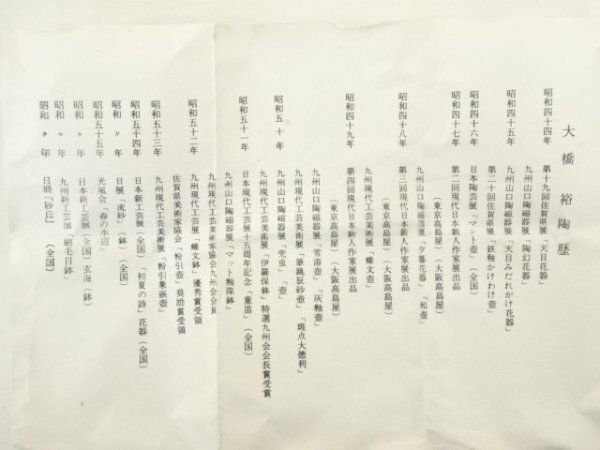 大橋裕陶歴
昭和四十四年 第十九回佐賀県展「天目花器」
九州山口陶磁器展「陶幻花器」
昭和四十五年 九州山口陶磁器展「天目みだれがけ花器」
第二十回佐賀県展「鉄釉かけわけ壺」
昭和四十六年 日本陶芸展「マント壺」(全国)
昭和四十七年 第二回現代日本新人作家展出品
(東京高島屋)(大阪高島屋)
九州山口陶磁器展「夕暮花器」「和壺」
昭和四十八年 第三回現代日本新人作家展出品
(東京高島屋)(大阪高島屋)
九州現代工芸美術展「蝶文壺」
昭和四十九年 第四回現代日本新人作家展出品
(東京高島屋)(大阪高島屋)
九州山口陶磁器展「雪溶壺」「灰釉壺」
九州現代工芸美術展「筆跳辰砂壺」「斑点大徳利」
昭和五十年 九州山口陶磁器展「兜虫」「壺」
九州現代工芸美術展「伊羅保鉢」特選九州会会長賞受賞
昭和五十一年 日本現代工芸美術展十五周年記念「童笛」(全国)
九州山口陶磁器展「マット釉深鉢」
九州現代工芸美術家協会九州会会員
昭和五十二年 九州現代工芸展「蝶文鉢」優秀賞受領
佐賀県美術家協会「粉引壺」奨励賞受領
昭和五十三年 九州現代工芸美術展「粉引象嵌壺」
昭和五十四年 日本新工芸展(全国)「初夏の詩」花器(全国)
昭和〃年 日展「流砂」(鉢)(全国)
昭和五十五年 光風会「春の水辺」
昭和〃年 日本新工芸展(全国)玄海(鉢)
昭和〃年 九州新工芸展「刷毛目鉢」
昭和〃年 日展「砂丘」(全国)